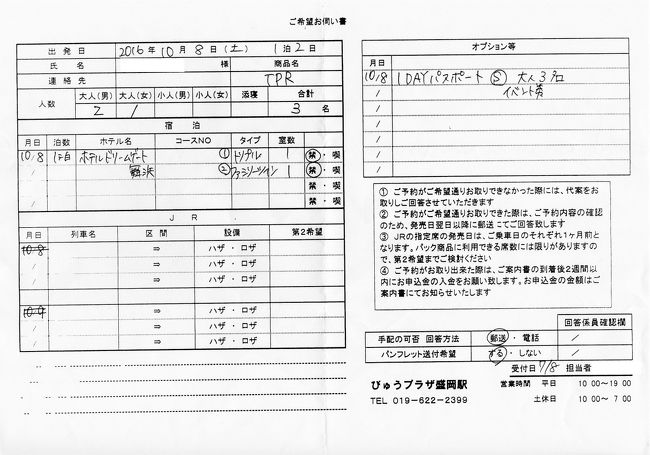 ご希望お伺い書
出発日 2016年10月8日(土) 1泊2日
氏名 様 商品名
連絡先 TPR
人数 大人(男) 大人(女) 小人(男) 小人(女) 添寝 合計
2 1 3名
宿泊
月日 泊数 ホテル名 コースNO タイプ 室数
10/8 1泊 ホテルドリームゲート ① トリプル 1 禁・喫
/ 舞浜 ② ファミリーツイン 1 禁・喫
/ 禁・喫
/ 禁・喫
JR
月日 列車名 区間 設備 第2希望
10/8 ⇒ ハザ・ロザ
/ ⇒ ハザ・ロザ
/ ⇒ ハザ・ロザ
10/9 ⇒ ハザ・ロザ
/ ⇒ ハザ・ロザ
/ ⇒ ハザ・ロザ
オプション等
月日
10/8 1DAYパスポート Ⓢ 大人3名
/ イベント券
/
/
/
/
① ご予約がご希望通りお取りできなかった際には、代案をお
取りしご回答させていただきます
② ご予約がご希望通りお取りできた際は、ご予約内容の確認
のため、発売日翌日以降に郵送にてご回答致します
③ JRの指定席の発売日は、ご乗車日のそれぞれ1ヶ月前と
なります。パック商品に利用できる席数には限りがありますの
で、第2希望までご検討ください
④ ご予約がお取り出来た際は、ご案内書の到着後2週間以
内にお申込金の入金をお願い致します。お申込金の金額はご
案内書にてお知らせいたします
回答係員確認欄
手配の可否 回答方法 郵送・電話 /
パンフレット送付希望 する・しない /
受付日 7/8 担当者
びゅうプラザ盛岡駅 営業時間 平日 10:00~19:00
TEL 019-622-2399 土休日 10:00~ 7:00